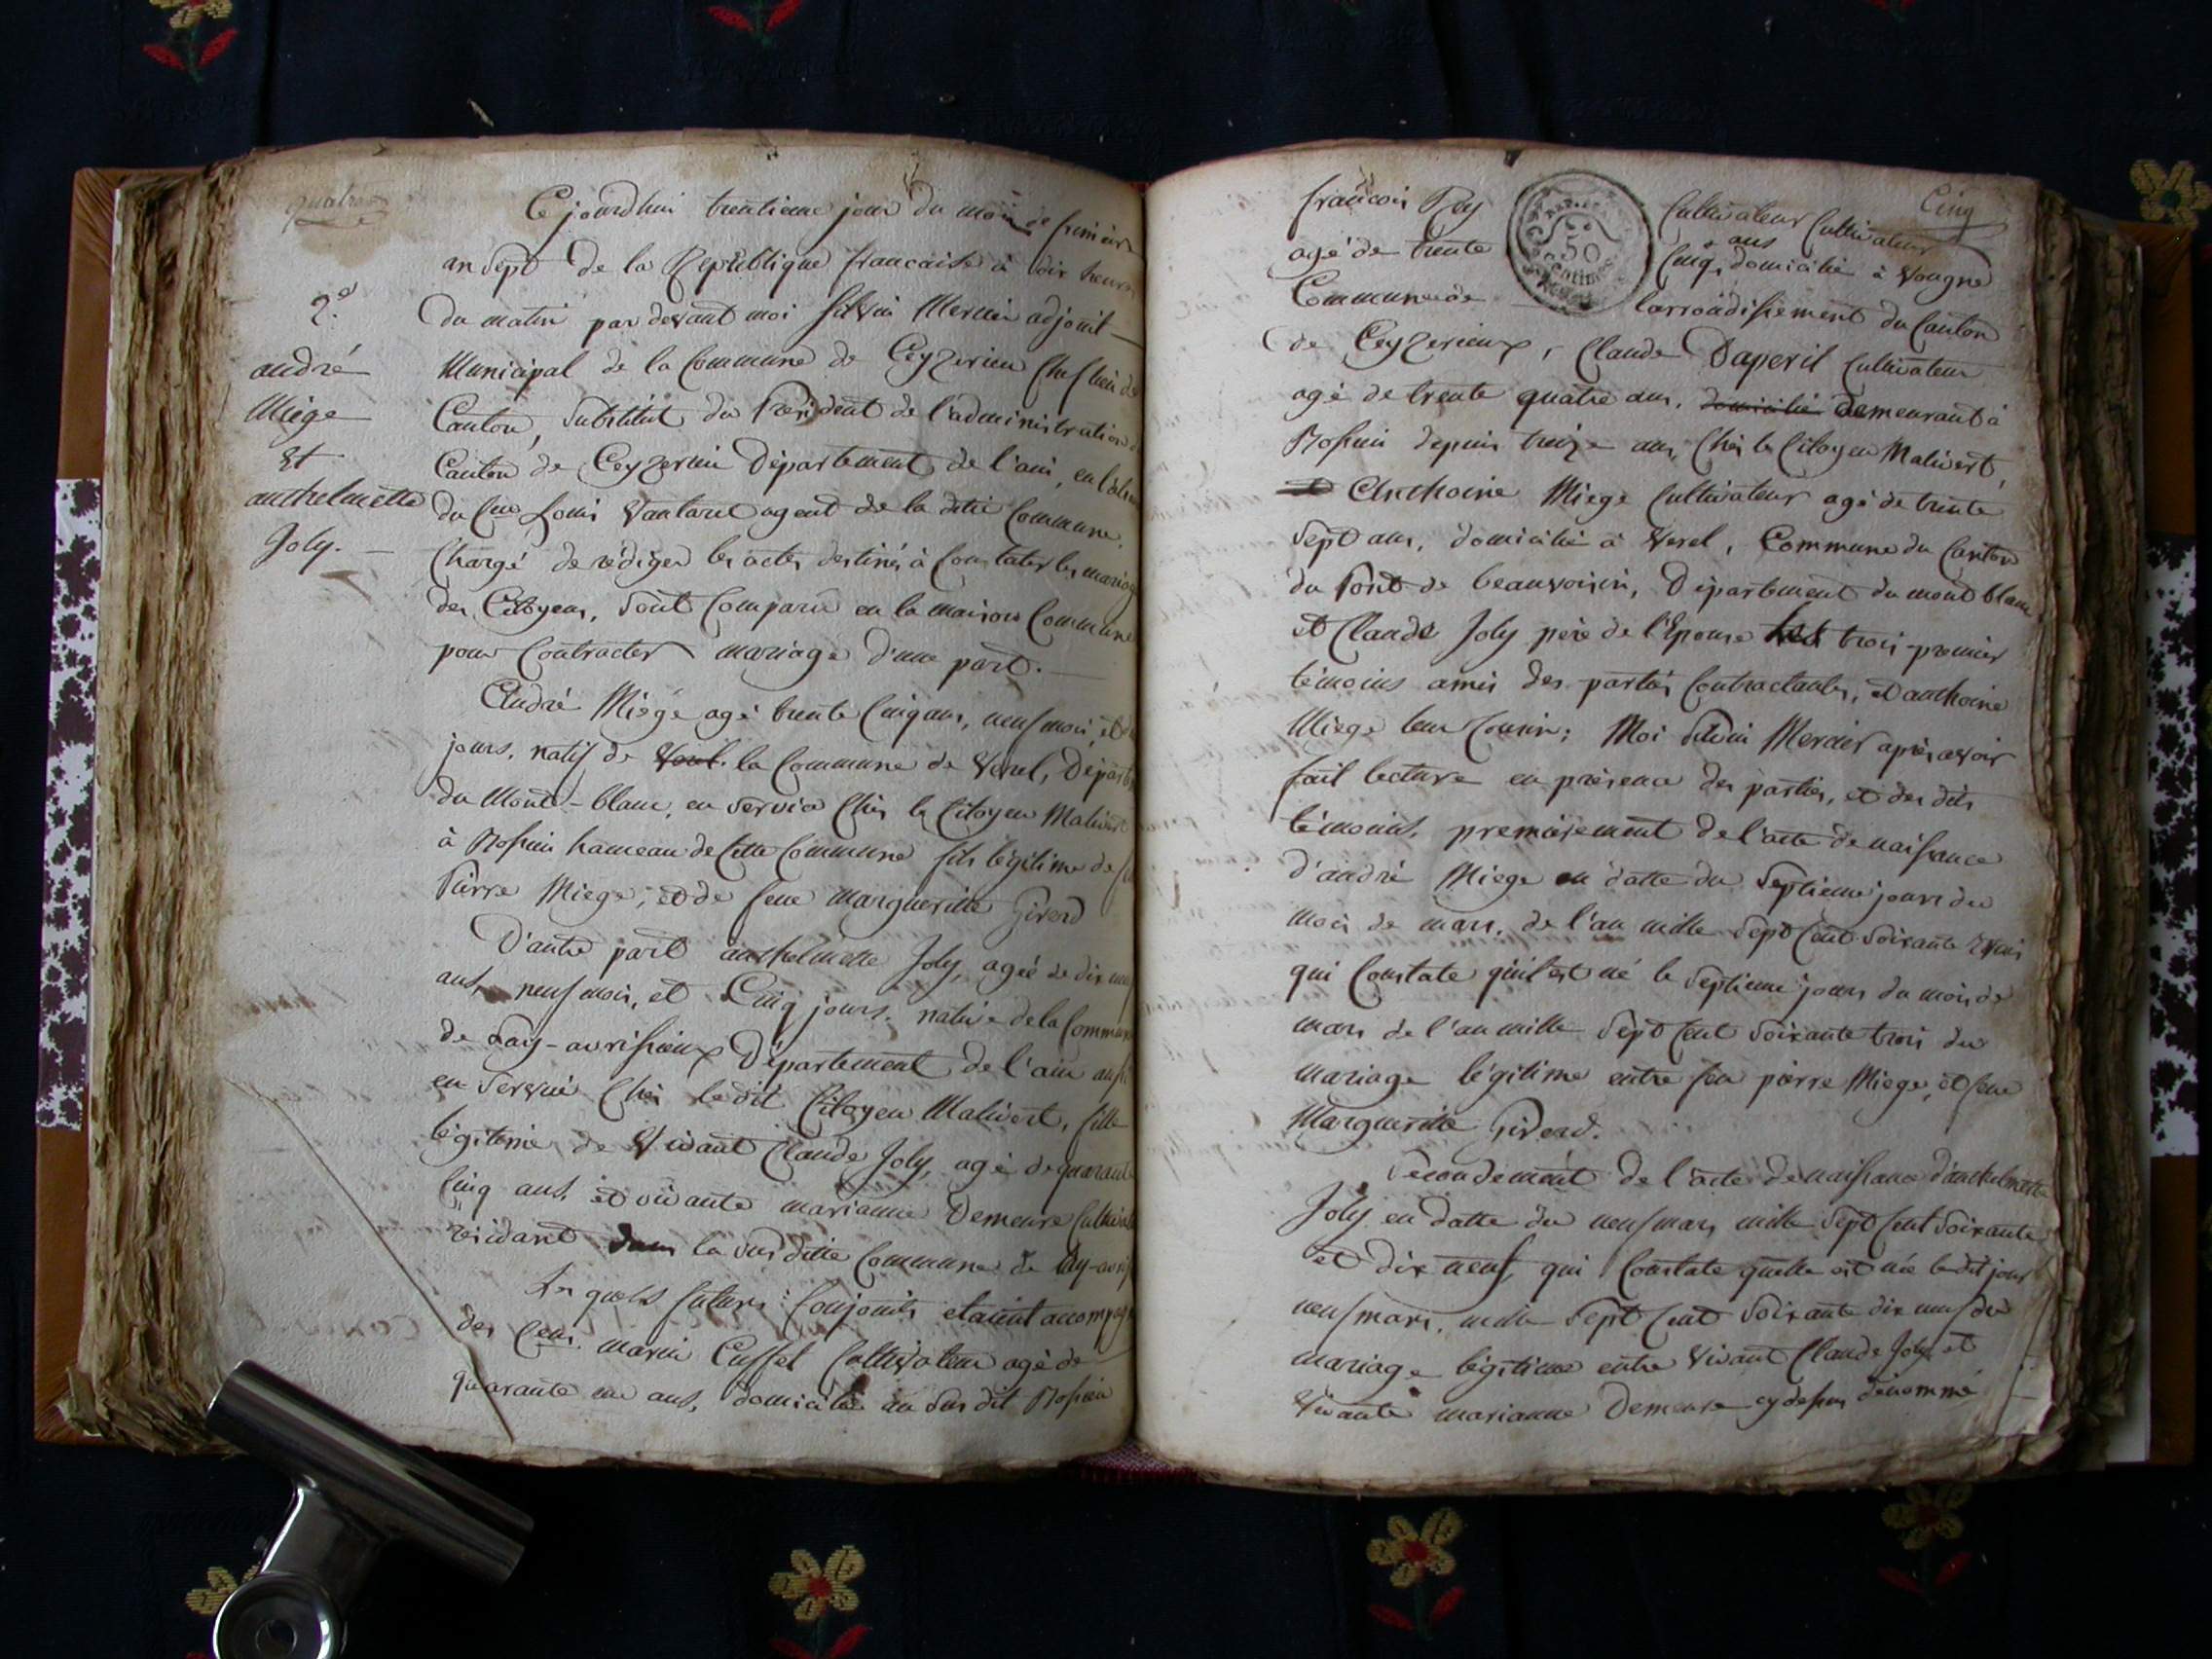 quatre
Cejourdhui trentieme jour du mois de frimaire
an Sept de la Republique francaise à dix heures
du matin par devant moi Silvin Mercier adjoint
Municipal de la Commune de Ceyzerieu Chef lieu de
Canton, Substitut du President de l'administration
Canton de Ceyzerieu Département de l'ain, en
du Cen Louis Vantaret agent de la ditte Commune.
Chargé de rédiger les actes destinés à Constater les mariages
des Citoyens, Sont Comparu en la maison Commune
pour Contracter mariage d'une part.
2.e
andré
Miége
Et
anthelmette
Joly.
André Miége agé trente Cinq ans, neuf mois, et
jours, natif de Verel. la Commune de Verel, Départ
du Mont-blanc, en Service Chés le Citoyen Malivert
à Rossin hameau de Cette Commune fils légitime de
Pierre Miege, et de feue Marguerite Girerd
D'autre part anthelmette Joly, agée de dix neuf
ans, neuf mois, et Cinq jours. native de la Commune
de Lay-avrissieux Département de l'ain aussi
en Service Chés le dit Citoyen Malivert, fille
légitime de Vivant Claude Joly, agé de quarante
Cinq ans, et vivante marianne Demeure
résidant dans la sus ditte Commune de lay-avris
Les quels futurs Conjoints etaient accompagn
des Cens. marin Cuffet Cultivateur agé de
quarante un ans, domicilié au Sus dit Rossin
Cinq
francois Rey Cultivateur Cultivateur
agé de trente Cinq ans domicilié à Vougne
Commune de larrondissement du Canton
de Ceyzerieux, Claude Daperil Cultivateur
agé de trente quatre ans, domicilié demeurant à
Rossin depuis treize ans, Chés le Citoyen Malivert,
et Anthoine Miege Cultivateur agé de trente
Sept ans, domicilié à Verel, Commune du Canton
du Pont de beauvoisin, Département du mont blanc
et Claude Joly père de l'Epouse les trois premier
témoins amis des parties Contractantes, et anthoine
Miege leur Cousin; Moi Silvin Mercier après avoir
fait lecture en présence des parties, et des dits
témoins, premièrement de l'acte de naissance
d'andré Miege en datte du Septieme jours du
mois de mars, de l'an mille Sept Cent Soixante trois
qui Constate qu'il est né le Septieme jours du mois de
mars de l'an mille Sept Cent Soixante trois du
mariage légitime entre feu pierre Miege, et feue
Marguerite Girerd.
Secondement de l'acte de naissance d'anthelmette
Joly en datte du neuf mars mille Sept Cent Soixante
et dix neuf, qui Constate quelle est née le dit jour
neuf mars, mille Sept Cent Soixante dix neuf du
mariage légitime entre Vivant Claude Joly et
Vivante marianne Demeure cy dessus dénommé
50
Centimes